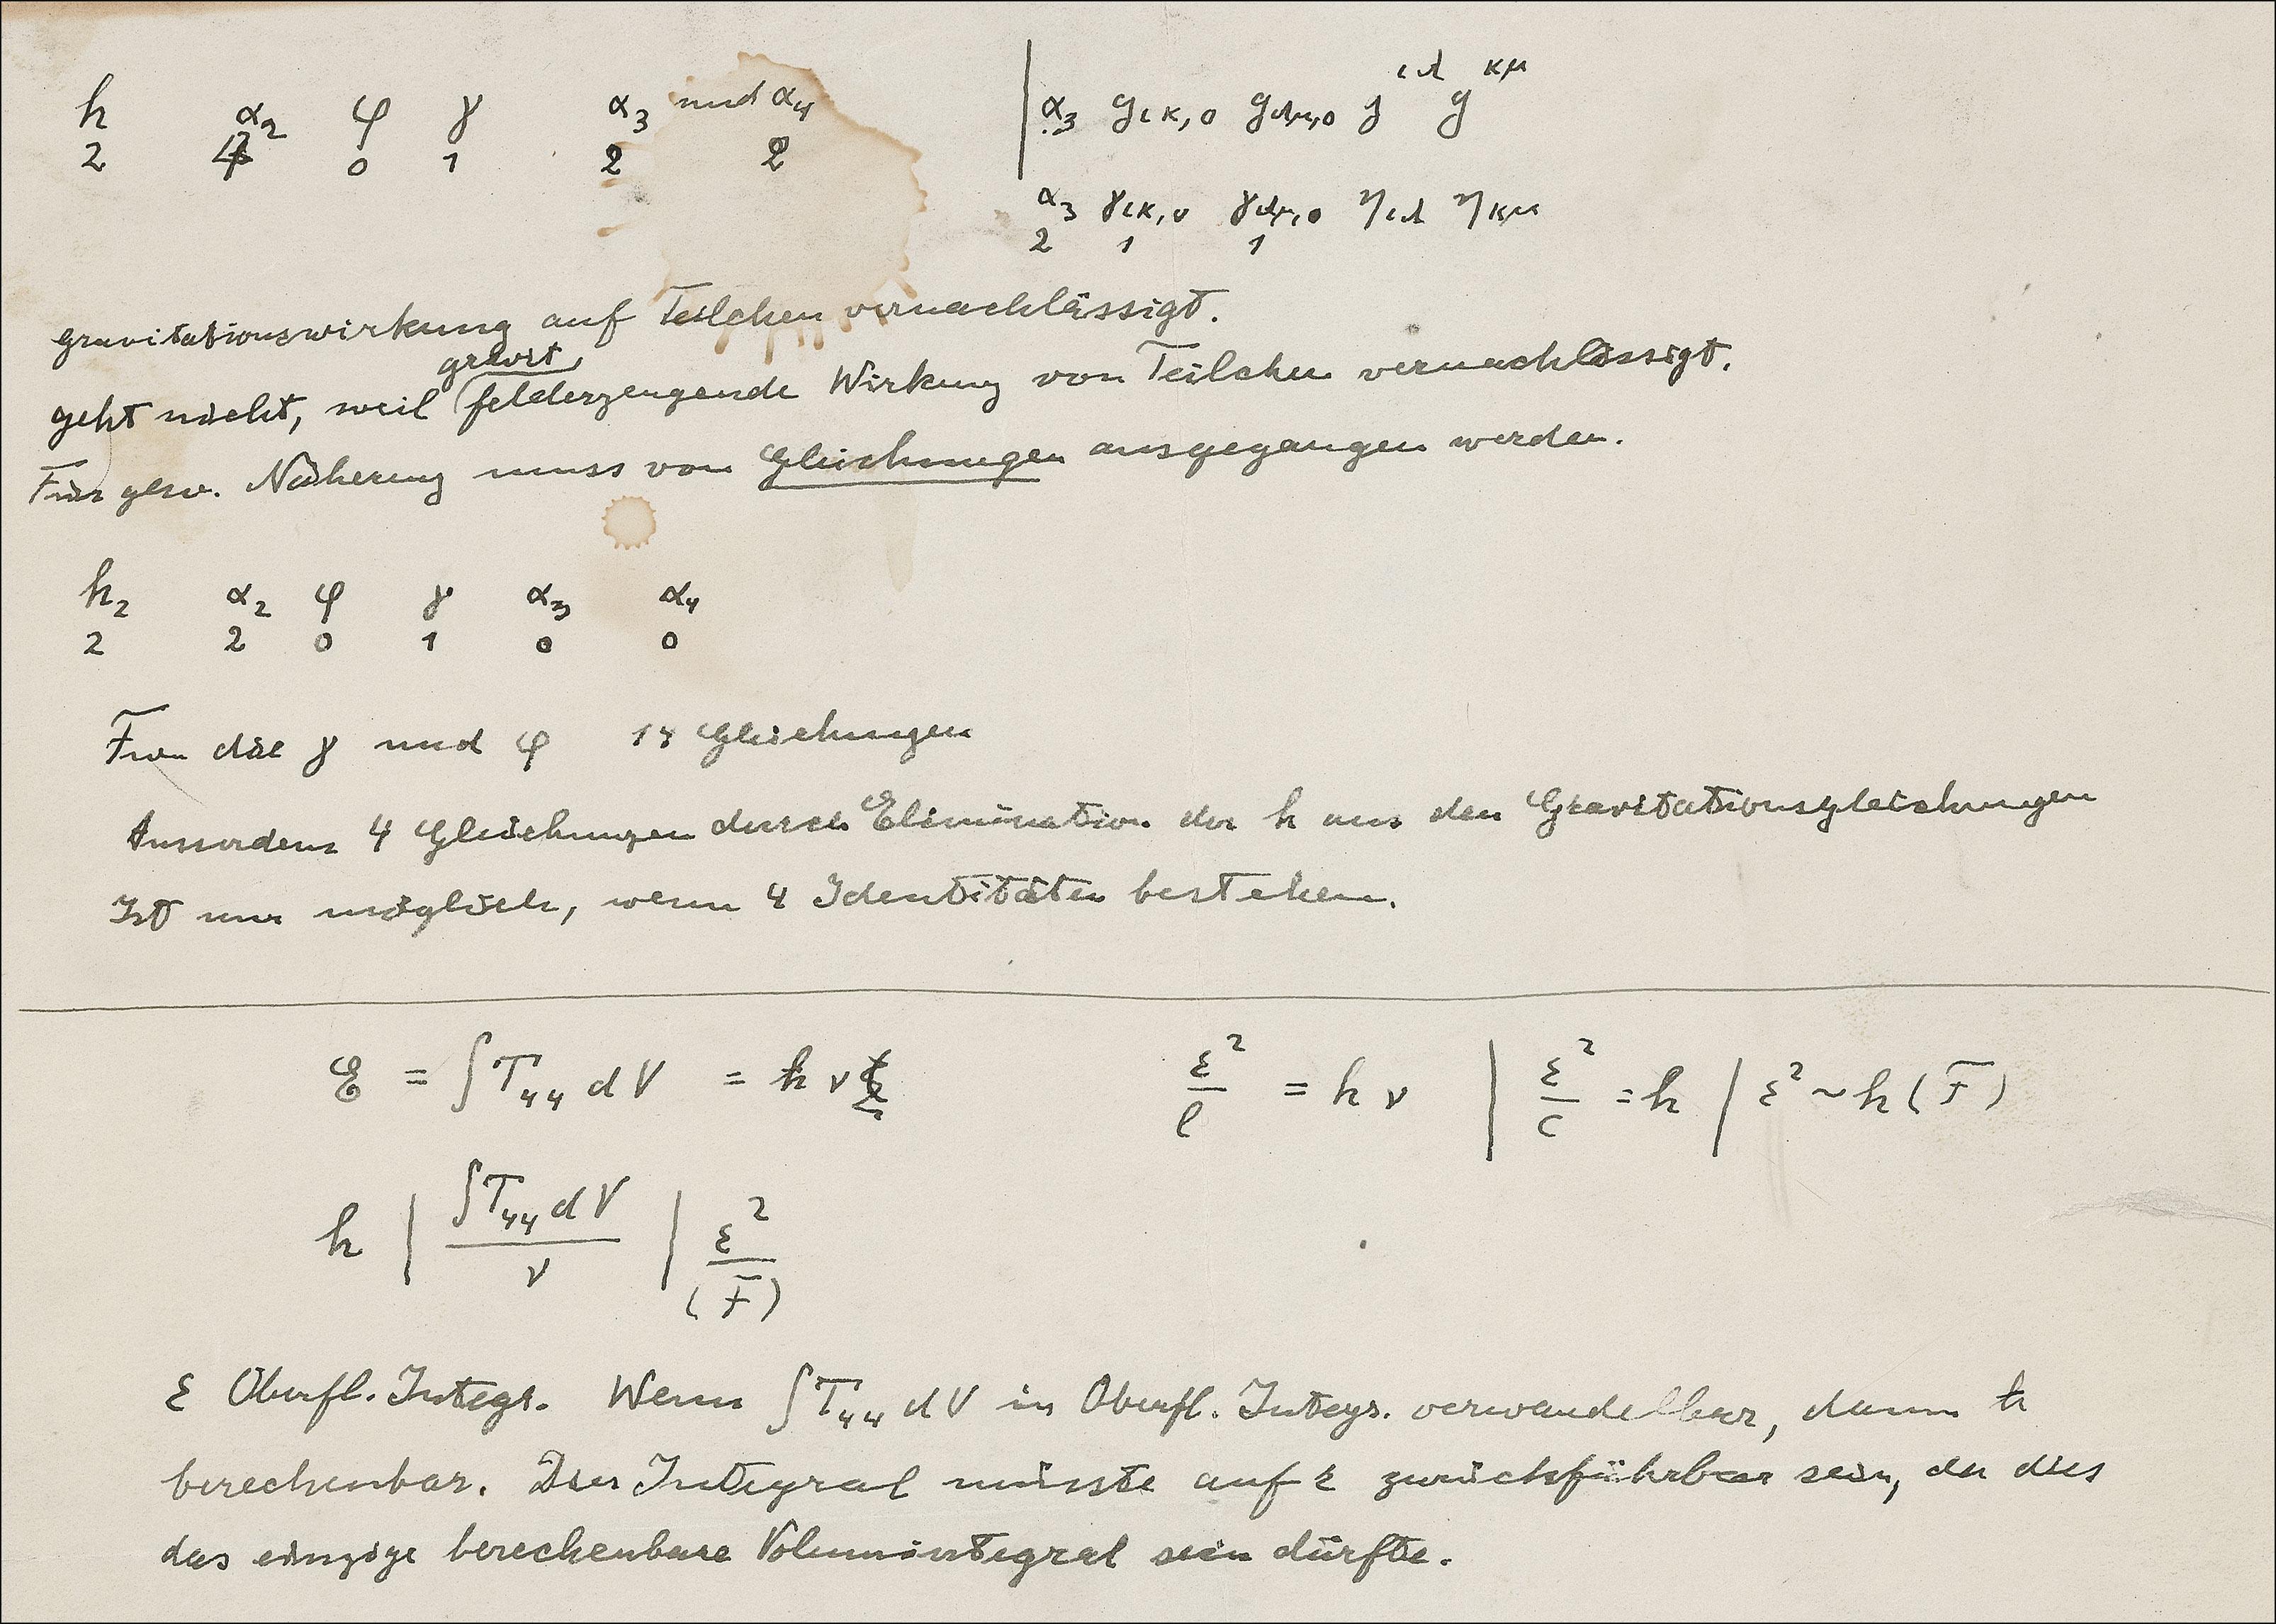 h α₂ φ γ α₃ und α₄ | α₃ g_{ικ,0} g_{λμ,0} g^{ιλ} g^{κμ}
2 0 1 2 2
α₃ γ_{ικ,0} γ_{λμ,0} η_{ιλ} η_{κμ}
2 1 1
Gravitationswirkung auf Teilchen vernachlässigt.
gravit.
geht nicht, weil (felderzeugende Wirkung von Teilchen vernachlässigt.
Für gew. Näherung muss von Gleichungen ausgegangen werden.
h₂ α₂ φ γ α₃ α₄
2 2 0 1 0 0
Für die γ und φ 14 Gleichungen
Ausserdem 4 Gleichungen durch Elimination der h aus den Gravitationsgleichungen
Ist nur möglich, wenn 4 Identitäten bestehen.
E = ∫T₄₄ dV = h ν ε²/l = h ν | ε²/c = h | ε² ~ h (F)
h | ∫T₄₄ dV/ν | ε²/(F)
ε Oberfl. Integr. Wenn ∫T₄₄ dV in Oberfl. Integr. verwandelbar, dann h
berechenbar. Dies Integral müsste auf ε zurückführbar sein, da dies
das einzige berechenbare Volumintegral sein dürfte.